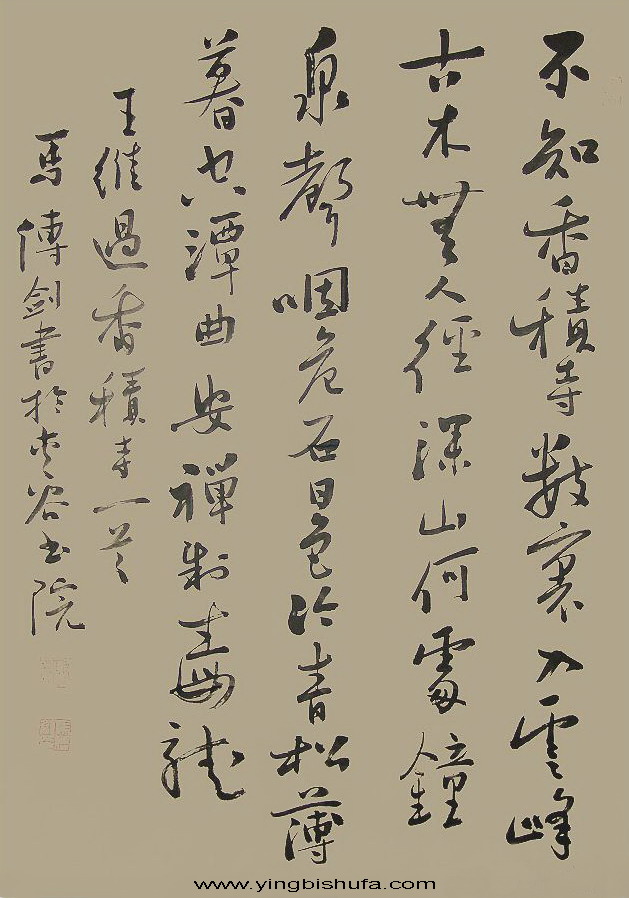 不知香積寺數裏入雲峰
古木無人徑深山何處鐘
泉聲咽危石日色冷青松薄
暮空潭曲安禪制毒龍
王維過香積寺一首
馬傳劍書於書院
www.yingbishufa.com